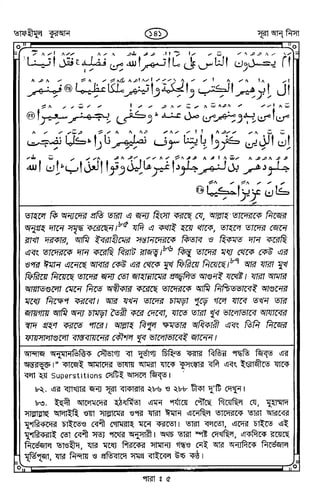 তাফহীমুল কুরআন
১৪১
সূরা আন্ নিসা
اَمْ يَحْسُدُوْنَ النَّاسَ عَلٰى مَآ اٰتٰىهُمُ اللّٰهُ مِنْ فَضْلِهٖ ۚ فَقَدْ اٰتَيْنَآ
اٰلَ اِبْرٰهِيْمَ الْكِتٰبَ وَالْحِكْمَةَ وَاٰتَيْنٰهُمْ مُّلْكًا عَظِيْمًا ۝ فَمِنْهُمْ
مَّنْ اٰمَنَ بِهٖ وَمِنْهُمْ مَّنْ صَدَّ عَنْهُ ؕ وَكَفٰى بِجَهَنَّمَ سَعِيْرًا ۝
اِنَّ الَّذِيْنَ كَفَرُوْا بِاٰيٰتِنَا سَوْفَ نُصْلِيْهِمْ نَارًا ؕ كُلَّمَا نَضِجَتْ
جُلُوْدُهُمْ بَدَّلْنٰهُمْ جُلُوْدًا غَيْرَهَا لِيَذُوْقُوا الْعَذَابَ ؕ اِنَّ اللّٰهَ
كَانَ عَزِيْزًا حَكِيْمًا ۝
তাহলে কি অন্যদের প্রতি তারা এ জন্য হিংসা করছে যে, আল্লাহ তাদেরকে নিজের
অনুগ্রহ দানে সমৃদ্ধ করেছেন। যদি এ কথাই হয়ে থাকে, তাহলে তাদের জেনে
রাখা দরকার, আমি ইবরাহীমের সন্তানদেরকে কিতাব ও হিকমত দান করেছি
এবং তাদেরকে দান করেছি বিরাট রাজত্ব। কিন্তু তাদের মধ্য থেকে কেউ এর
ওপর ঈমান এনেছে আবার কেউ এর থেকে মুখ ফিরিয়ে নিয়েছে। আর যারা মুখ
ফিরিয়ে নিয়েছে তাদের জন্য তো জাহান্নামের প্রজ্জ্বলিত আগুনই যথেষ্ট। যারা আমার
আয়াতগুলো মেনে নিতে অস্বীকার করেছে তাদেরকে আমি নিশ্চিতভাবেই আগুনের
মধ্যে নিক্ষেপ করবো। আর যখন তাদের চামড়া পুড়ে গলে যাবে তখন তার
জায়গায় আমি অন্য চামড়া তৈরী করে দেবো, যাতে তারা খুব ভালোভাবে আযাবের
স্বাদ গ্রহণ করতে পারে। আল্লাহ বিপুল ক্ষমতার অধিকারী এবং তিনি নিজের
ফায়সালাগুলো বাস্তবায়নের কৌশল খুব ভালোভাবেই জানেন।
আন্দাজ অনুমানভিত্তিক সৌভাগ্য বা দুর্ভাগ্য চিহ্নিত করার বিভিন্ন পদ্ধতি জিব্‌ত এর
অন্তরভুক্ত।" কাজেই আমাদের ভাষায় আমরা যাকে কুসংস্কার বলি এবং ইংরেজীতে যাকে
বলা হয় Superstitions সেটিই আসলে জিব্‌ত।
৮২. এর ব্যাখ্যার জন্য সূরা বাকারার ২৮৬ ও ২৮৮ টীকা দু'টি দেখুন।
৮৩. ইহুদী আলেমদের হঠধর্মিতা এমন পর্যায়ে পৌঁছে গিয়েছিল যে, মুহাম্মাদ
সাল্লাল্লাহু আলাইহি ওয়া সাল্লামের ওপর যারা ঈমান এনেছিল তাদেরকে তারা আরবের
মুশরিকদের চাইতেও বেশী গোমরাহ মনে করতো। তারা বলতো, এদের চাইতে এই
মুশরিকরাই তো বেশী সত্য পথের অনুসারী। অথচ তারা স্পষ্ট দেখছিল, একদিকে রয়েছে
নির্ভেজাল তাওহীদ, যার মধ্যে শিরকের সামান্য গন্ধও নেই আর অন্যদিকে নির্ভেজাল
মূর্তিপূজা, যার নিন্দায় ও প্রতিবাদে সমগ্র বাইবেল উচ্চ কণ্ঠ।
পারা : ৫